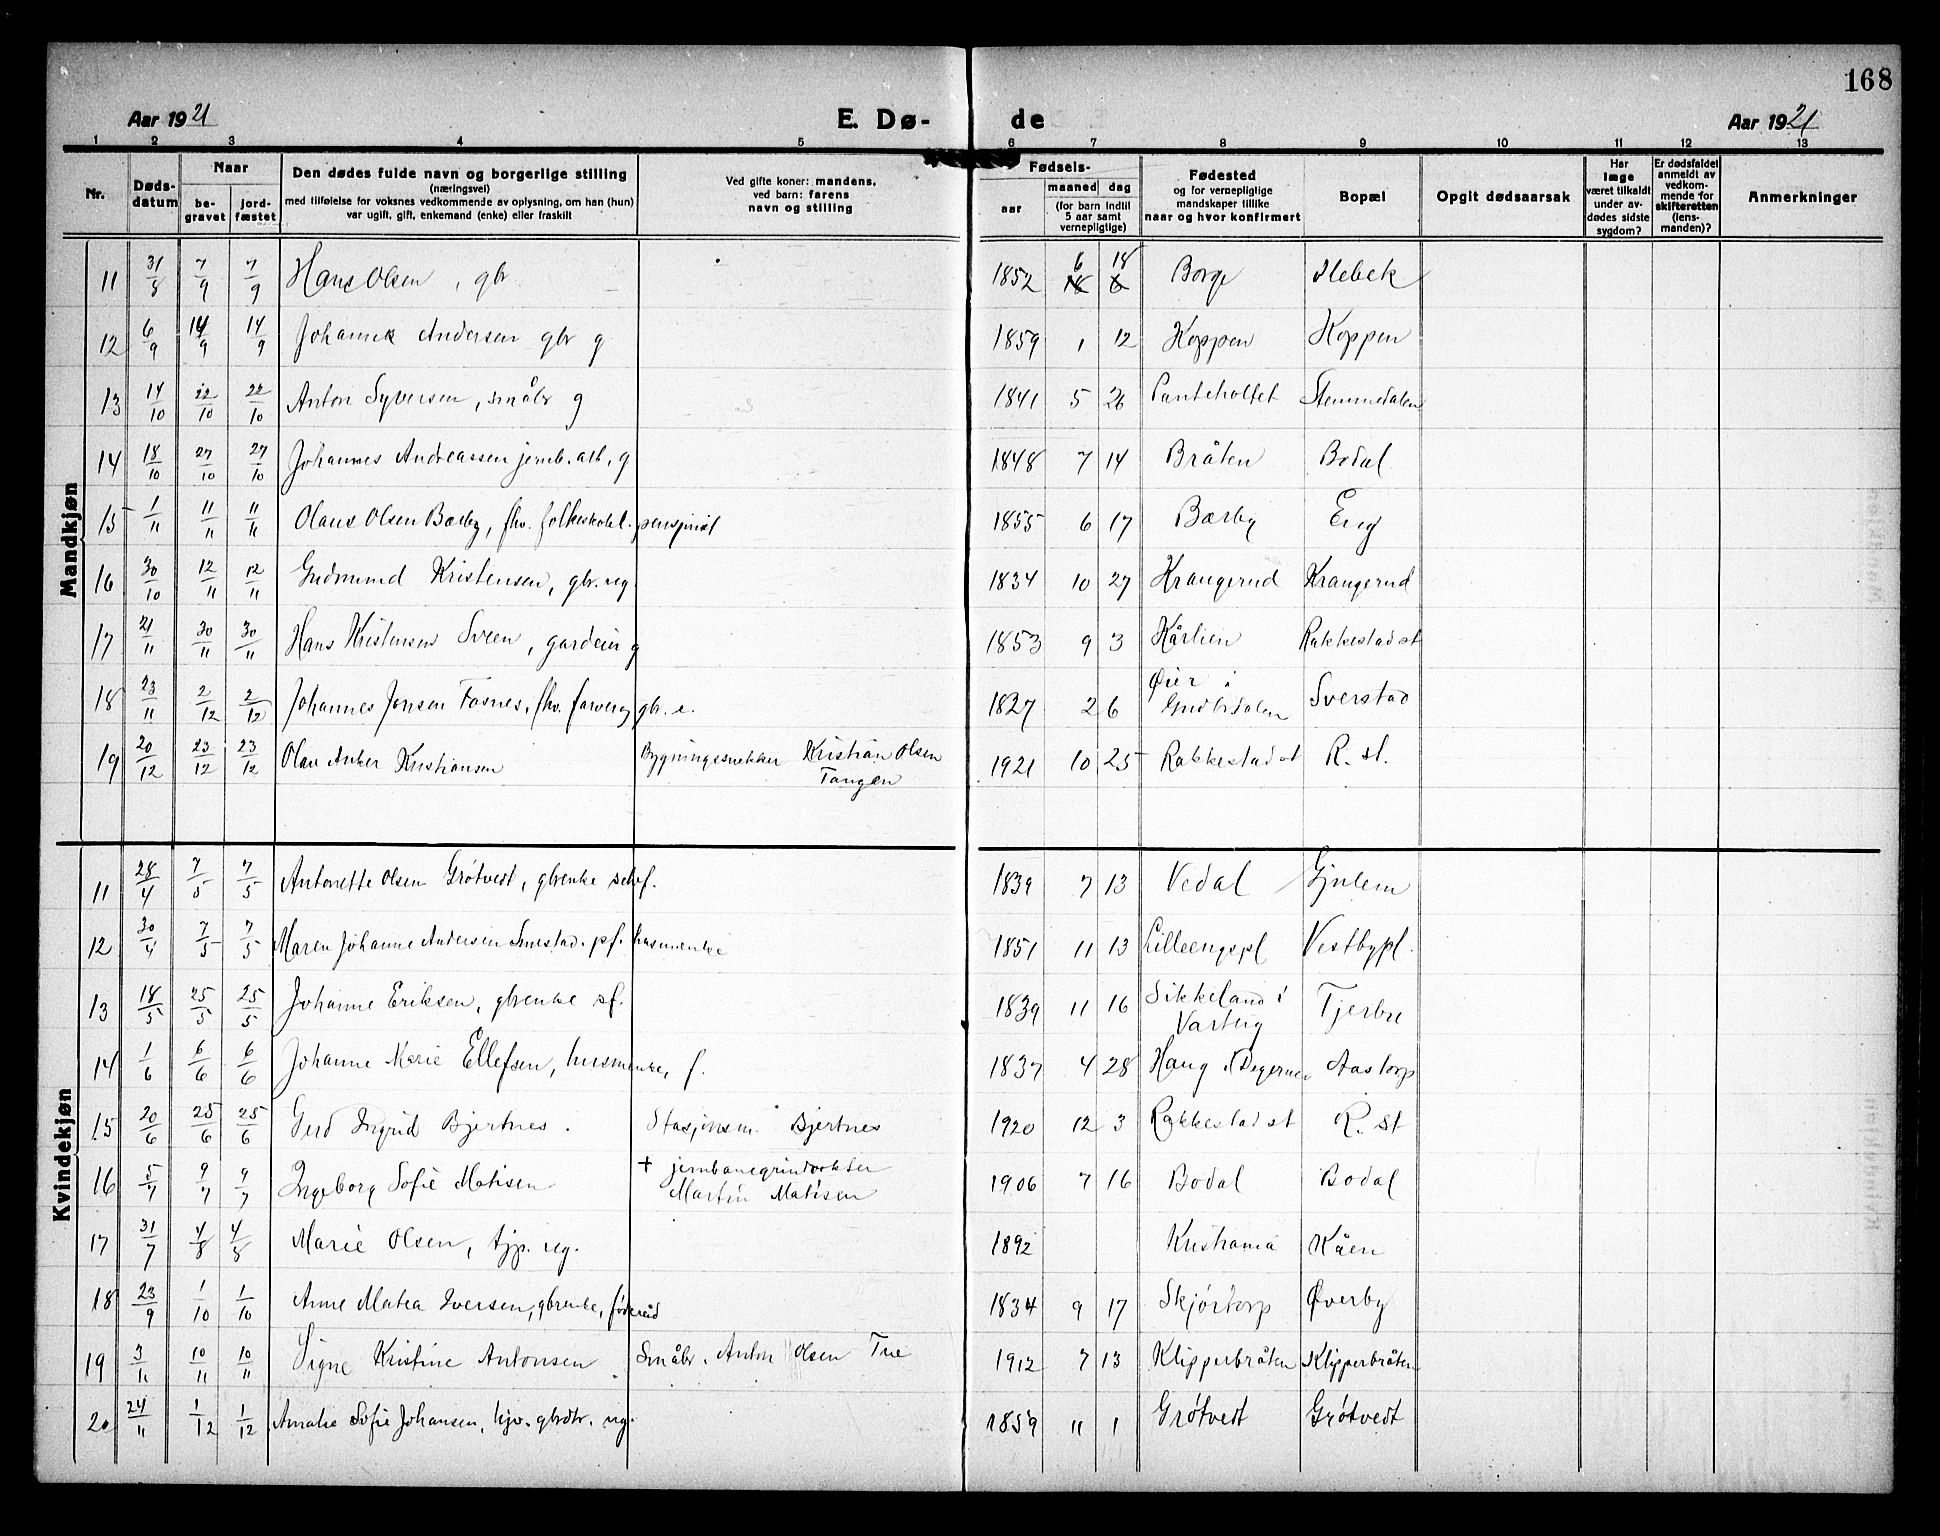 168
Aar 1921
E. Dø-
de
Aar 1921
1 2 3 4 5 6 7 8 9 10 11 12 13
Nr.
Døds-
datum
Naar
be-
gravet
jord-
fæstet
Den dødes fulde navn og borgerlige stilling
(næringsvei)
med tilføielse for voksnes vedkommende av oplysning, om han (hun)
var ugift, gift, enkemand (enke) eller fraskilt
Ved gifte koner: mandens,
ved barn: farens
navn og stilling
Fødsels-
aar
maaned
dag
(for barn indtil
5 aar samt
vernepligtige)
Fødested
og for vernepligtige
mandskaper tillike
naar og hvor konfirmert
Bopæl
Opgit dødsaarsak
Har
læge
været tilkaldt
under av-
dødes sidste
sygdom?
Er dødsfaldet
anmeldt av
vedkom-
mende for
skifteretten
(lens-
manden)?
Anmerkninger
Mandkjøn
11 31/8 7/9 7/9 Hans Olsen, gbr 1852 6 18 Borge
12 6/9 14/9 14/9 Johannes Andersen gbr g 1859 1 12 Koppen Koppen
13 14/10 22/10 22/10 Anton Syversen, småbr g 1841 5 26 Panteholtet Stemmedalen
14 18/10 27/10 27/10 Johannes Andreassen jernb. arb. g 1848 7 14 Bråten Bodal
15 1/11 11/11 11/11 Olaus Olsen Bærby, fhv. folkeskolel. pensjonist 1855 6 17 Bærby Eng
16 30/10 12/11 12/11 Gudmund Kristensen, gbr. ug. 1834 10 27 Krangerud Krangerud
17 21/11 30/11 30/11 Hans Kristensen Sveen, gardein g 1853 9 3 Kårlien Rakkestad st
18 23/11 2/12 2/12 Johannes Jonsen Fosnes, fhv. farver og gbr. e. 1827 2 6 Øier i
Gudbrdalen Sverstad
19 20/12 23/12 23/12 Olav Anker Kristiansen Bygningssnekker Kristian Olsen
Tangen 1921 10 25 Rakkestad st R. st.
Kvindekjøn
11 28/4 7/5 7/5 Antonette Olsen Grøtvedt, gbrenke selvf. 1839 7 13 Vedal Gjulem
12 30/4 7/5 7/5 Maren Johanne Andersen Smestad. pf. husmenke 1851 11 13 Lilleengpl Vestbypl.
13 18/5 25/5 25/5 Johanne Eriksen, gbrenke sf. 1839 11 16 Sikkeland i
Varteig Tjerbre
14 1/6 6/6 6/6 Johanne Marie Ellefsen, husmenke, f. 1837 4 28 Haug i Degernes Aastorp
15 20/6 25/6 25/6 Gerd Ingrid Bjertnes. Stasjonsm. Bjertnes 1920 12 3 Rakkestad st R. st
16 5/7 9/7 9/7 Ingeborg Sofie Matisen + jernbanegrindvokter
Martin Matisen 1906 7 16 Bodal Bodal
17 31/7 4/8 4/8 Marie Olsen, tjp. ug. 1892 Kristiania Kåen
18 23/9 1/10 1/10 Anne Matea Iversen, gbrenke, føderåd 1834 9 17 Skjørtorp Øverby
19 3/11 10/11 10/11 Signe Kristine Antonsen Småbr. Anton Olsen Tue 1912 7 13 Klipperbråten Klipperbråten
20 24/11 1/12 1/12 Amalie Sofie Johansen, hjv. gbrdtr. ug. 1859 11 1 Grøtvedt Grøtvedt